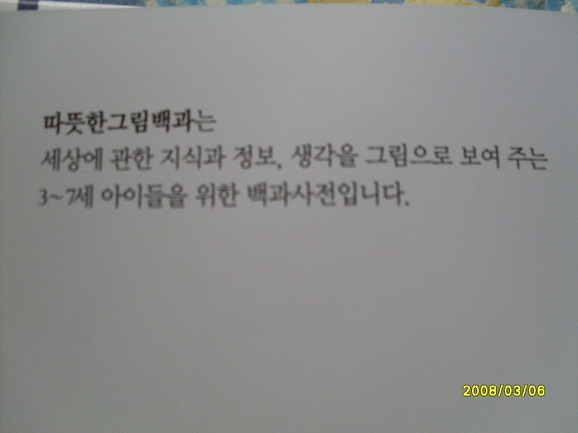 따뜻한그림백과는
세상에 관한 지식과 정보, 생각을 그림으로 보여 주는
3~7세 아이들을 위한 백과사전입니다.
2008/03/06